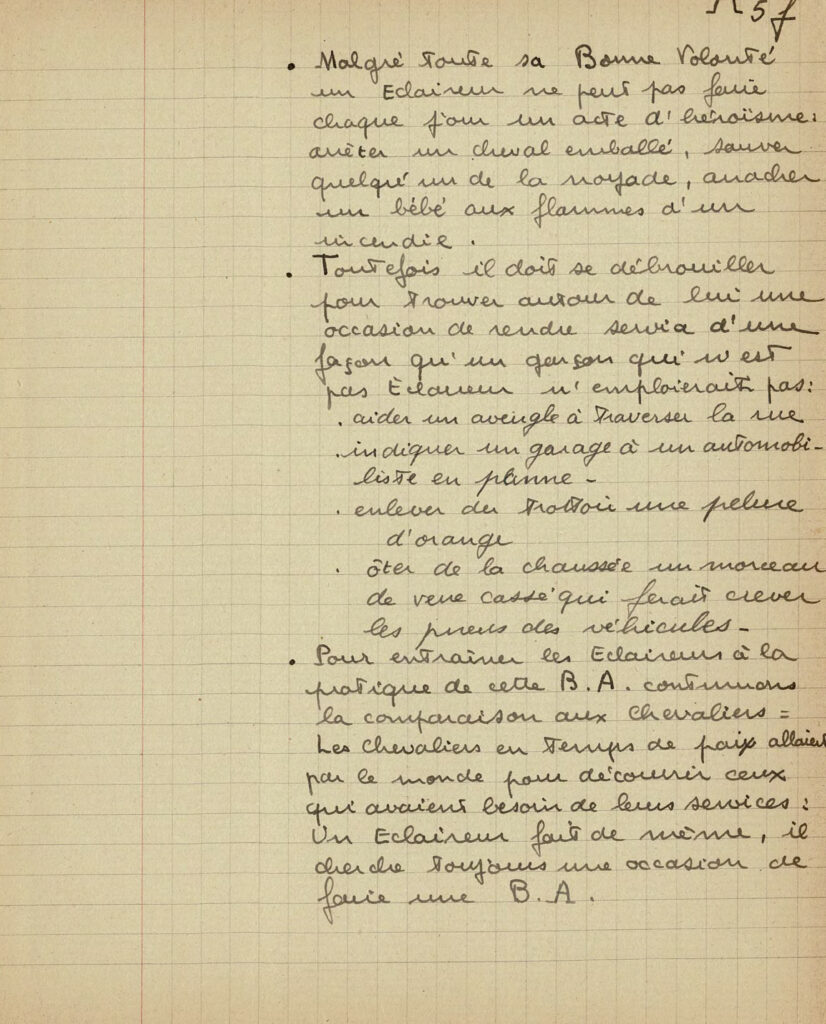 5f
• Malgré toute sa Bonne Volonté
un Eclaireur ne peut pas faire
chaque jour un acte d'héroïsme:
arrêter un cheval emballé, sauver
quelqu'un de la noyade, arracher
un bébé aux flammes d'un
incendie.
• Toutefois il doit se débrouiller
pour trouver autour de lui une
occasion de rendre service d'une
façon qu'un garçon qui n'est
pas Eclaireur n'emploierait pas:
. aider un aveugle à traverser la rue
. indiquer un garage à un automobi-
liste en panne -
. enlever du trottoir une pelure
d'orange
. ôter de la chaussée un morceau
de verre cassé qui ferait crever
les pneus des véhicules -
• Pour entraîner les Eclaireurs à la
pratique de cette B.A. continuons
la comparaison aux Chevaliers =
Les Chevaliers en temps de paix allaient
par le monde pour découvrir ceux
qui avaient besoin de leurs services:
Un Eclaireur fait de même, il
cherche toujours une occasion de
faire une B.A.